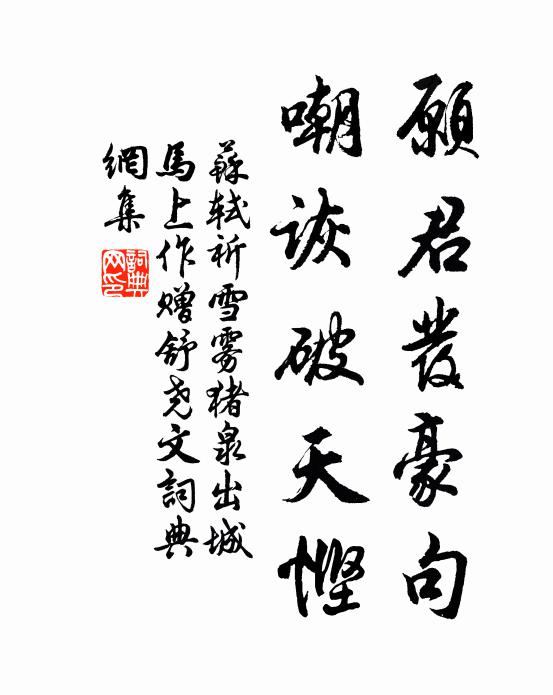 願君發豪句
嘲詼破天慳
蘇軾祈雪霧猪泉出城
馬上作赠舒尧文詞典
網集
詞典網印